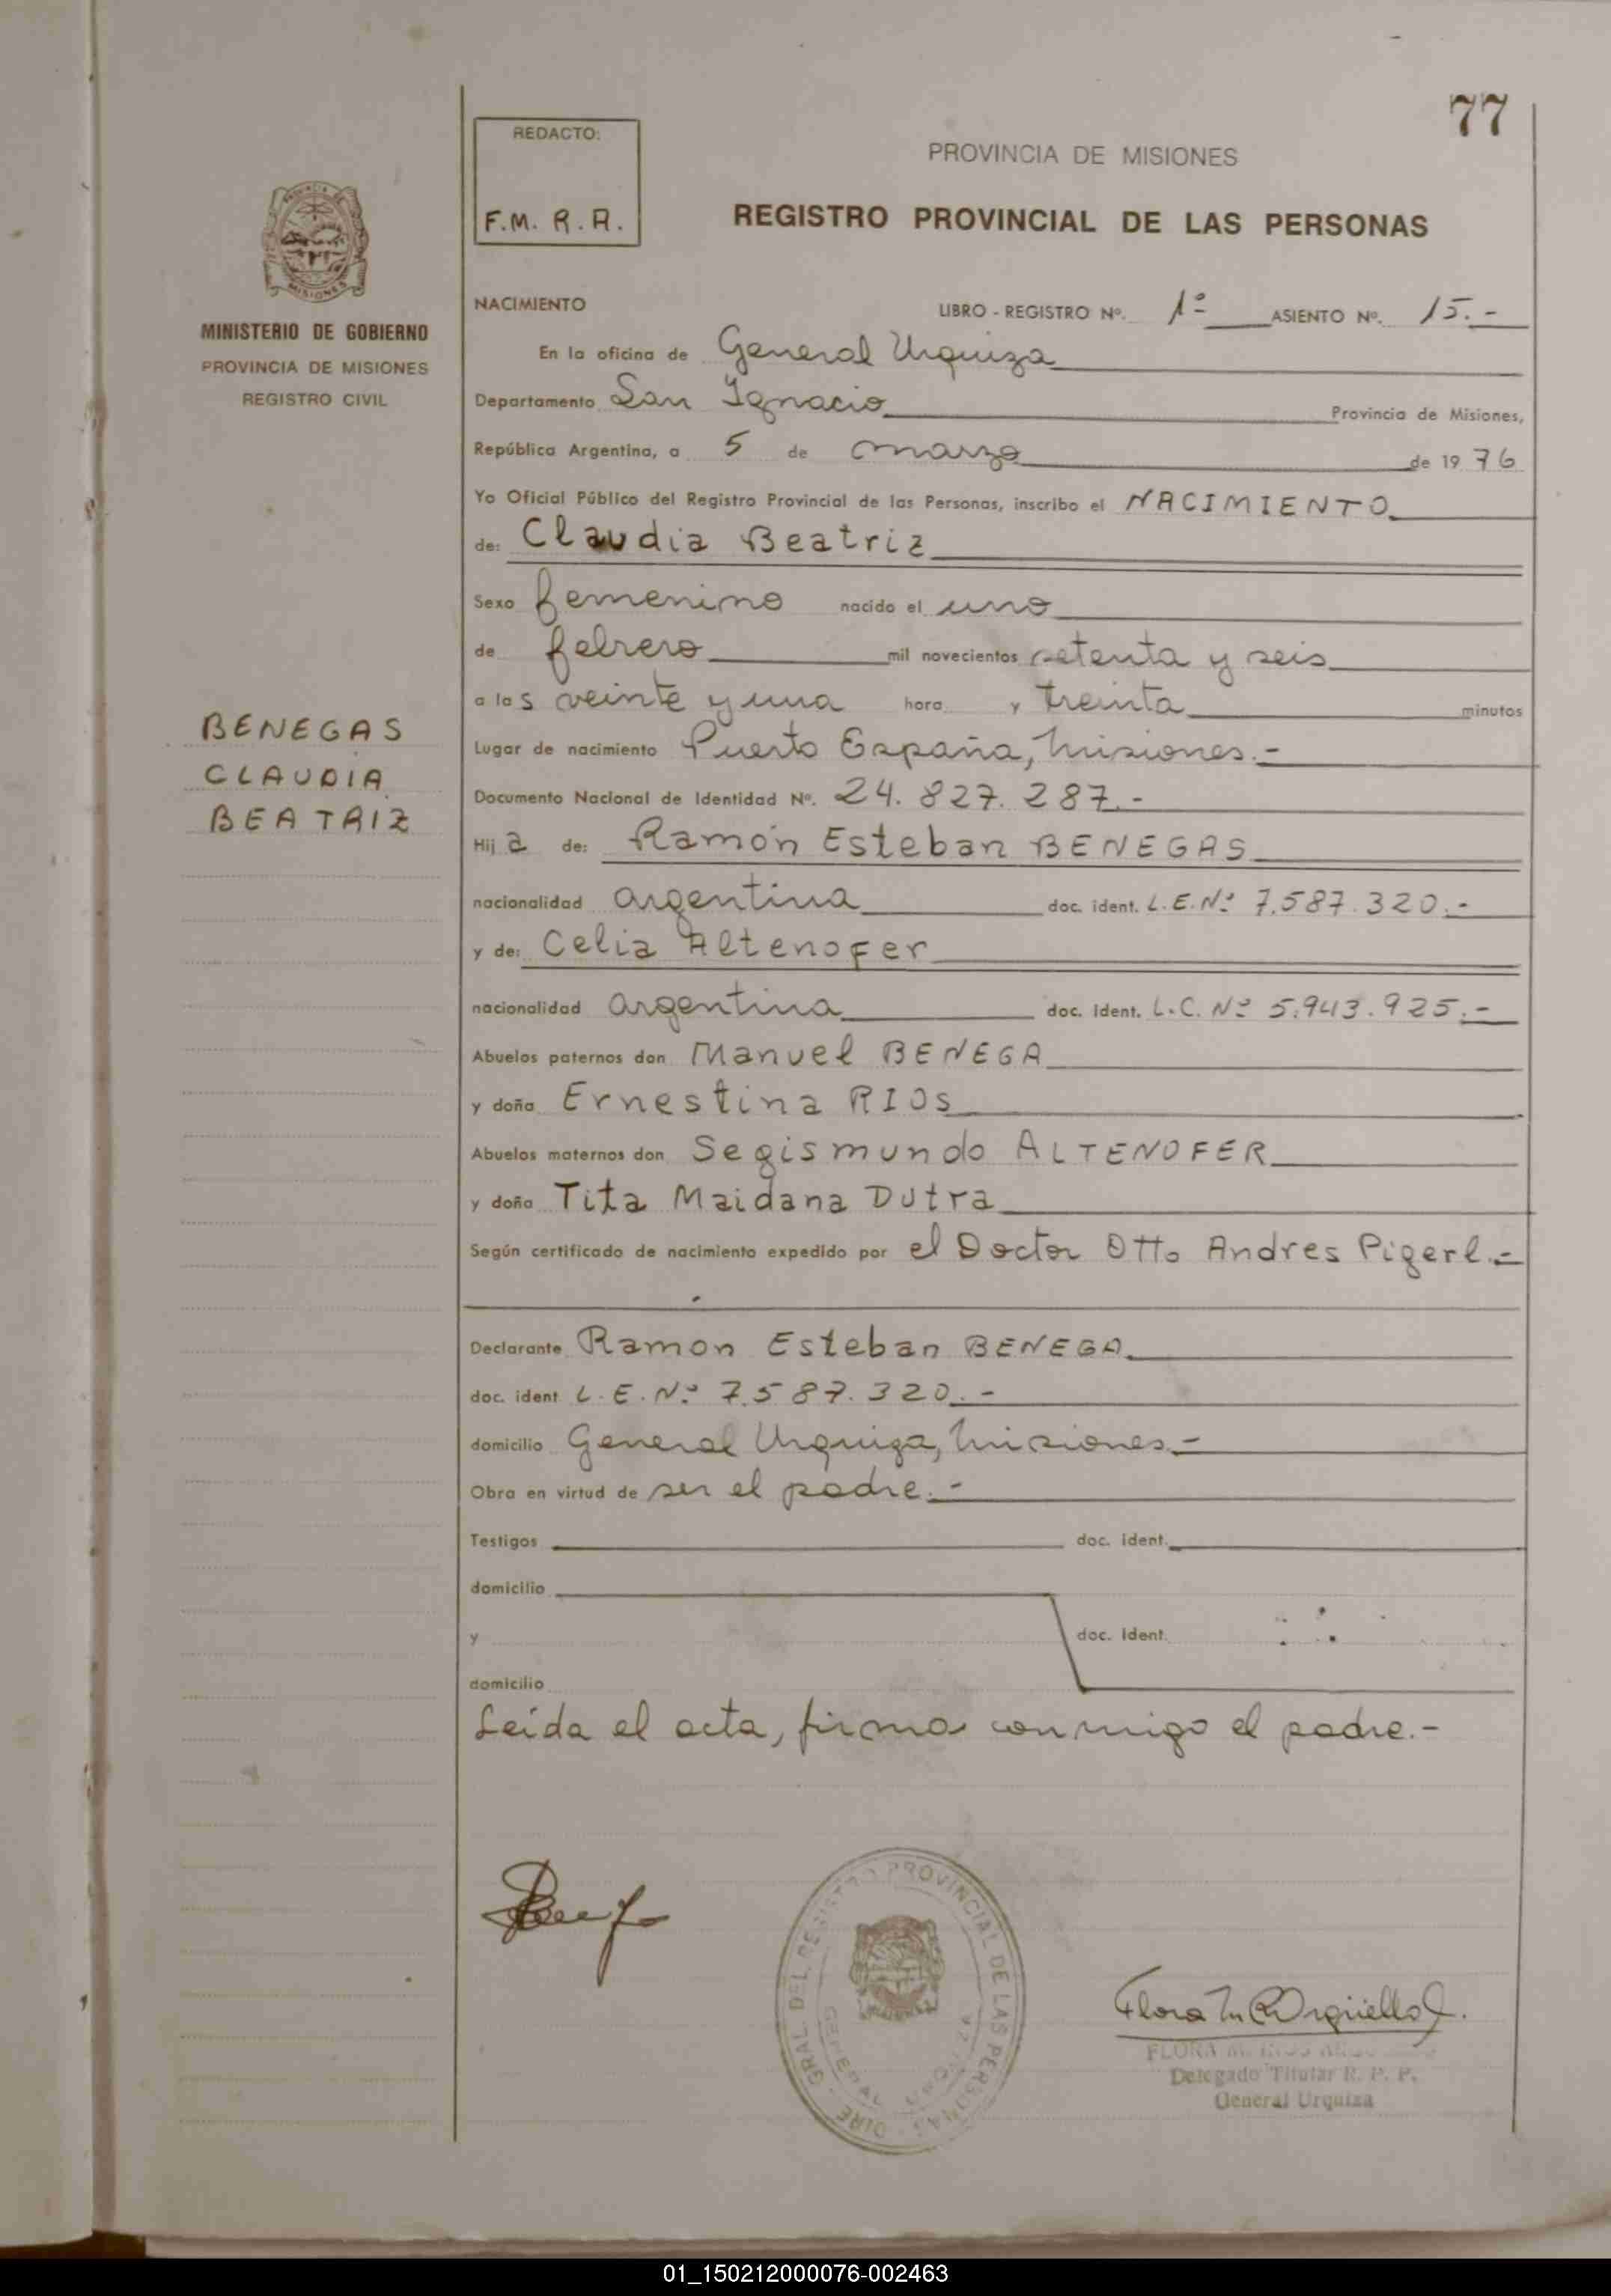 77
REDACTO:
F.M. R. A.
PROVINCIA DE MISIONES
REGISTRO PROVINCIAL DE LAS PERSONAS
MINISTERIO DE GOBIERNO
PROVINCIA DE MISIONES
REGISTRO CIVIL
BENEGAS
CLAUDIA
BEATRIZ
NACIMIENTO LIBRO - REGISTRO Nº. 1º ASIENTO Nº. 15.-
En la oficina de General Urquiza
Departamento San Ignacio Provincia de Misiones,
República Argentina, a 5 de marzo de 1976
Yo Oficial Público del Registro Provincial de las Personas, inscribo el NACIMIENTO
de: Claudia Beatriz
Sexo femenino nacido el uno
de febrero mil novecientos setenta y seis
a las veinte y una hora y treinta minutos
Lugar de nacimiento Puerto España, Misiones.-
Documento Nacional de Identidad Nº. 24.827.287.-
Hija de: Ramón Esteban BENEGAS
nacionalidad argentina doc. ident. L.E.Nº 7.587.320.-
y de: Celia Altenofer
nacionalidad argentina doc. ident. L.C. Nº 5.943.925.-
Abuelos paternos don Manuel BENEGA
y doña Ernestina RIOS
Abuelos maternos don Segismundo ALTENOFER
y doña Tita Maidana Dutra
Según certificado de nacimiento expedido por el Doctor Otto Andres Pigerl.-
Declarante Ramon Esteban BENEGA
doc. ident L.E.Nº 7.587.320.-
domicilio General Urquiza, Misiones.-
Obra en virtud de ser el padre.-
Testigos doc. ident.
domicilio
y doc. ident.
domicilio
Leída el acta, firma conmigo el padre.-
DIRE. GRAL. DEL REGISTRO PROVINCIAL DE LAS PERSONAS
GENERAL URQUIZA
Flora M R Argüello
FLORA M. RIOS
Delegado Titular R. P. P.
General Urquiza
01_150212000076-002463